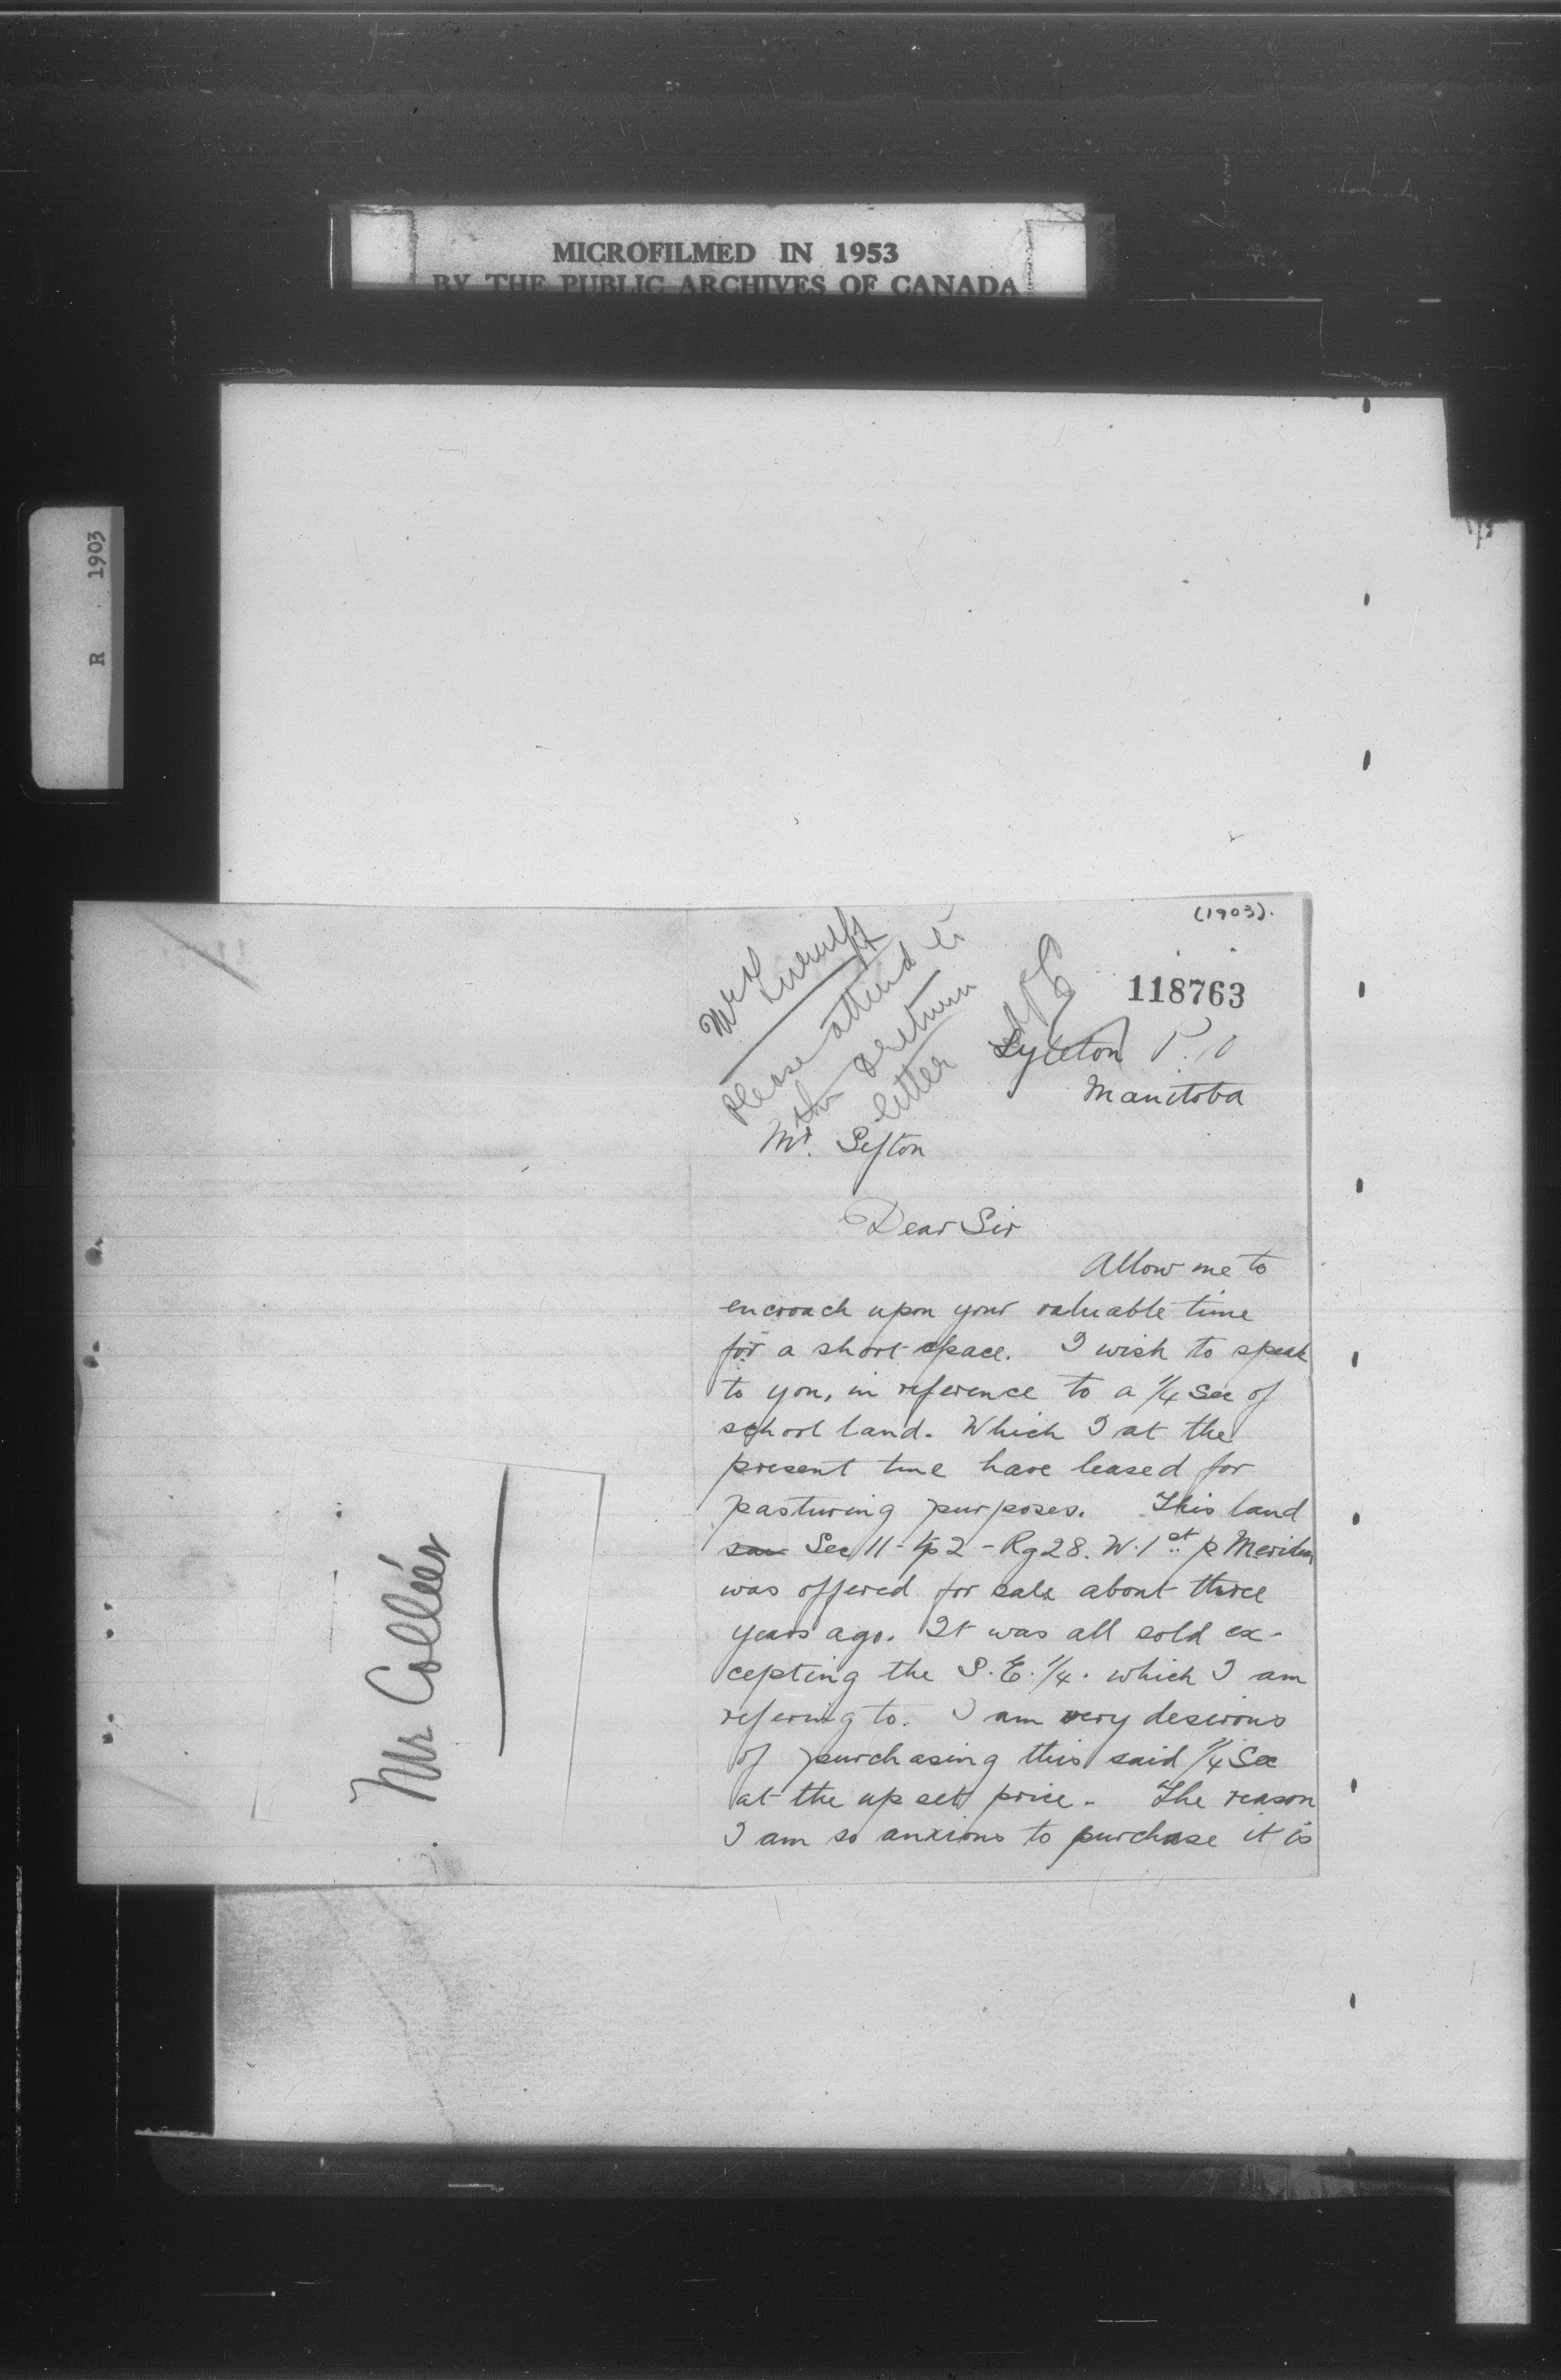 MICROFILMED IN 1953
BY THE PUBLIC ARCHIVES OF CANADA
R 1903
(1903).
118763
Mr
Please attend to
this & return
letter
Lyleton P.O
Manitoba
Mr. Sifton
Dear Sir
Allow me to
encroach upon your valuable time
for a short space. I wish to speak
to you, in reference to a 1/4 Sec of
school land. Which I at the
present time have leased for
pasturing purposes. This land
Sec 11 - Tp 2 - Rg 28. W. 1st p Meridian
was offered for sale about three
years ago. It was all sold ex-
cepting the S.E. 1/4. which I am
refering to. I am very desirous
of purchasing this said 1/4 Sec
at the up set price - The reason
I am so anxious to purchase it is
Mr Colleér